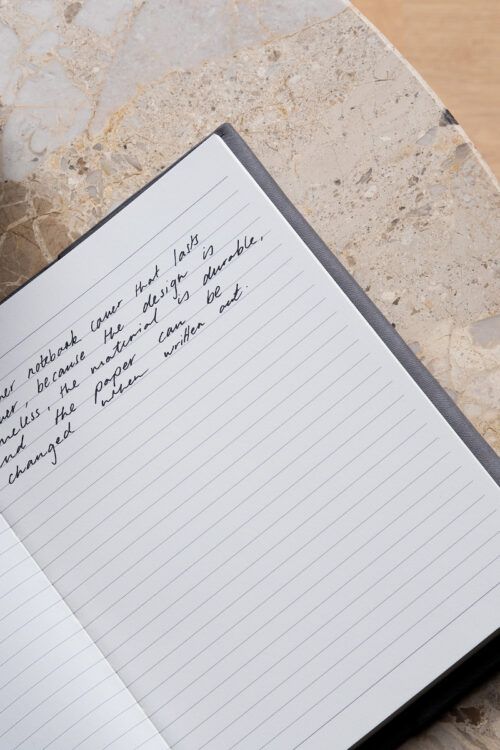 ner notebook cover that lasts
ver, because the design is
meless, the material is durable,
nd the paper can be
changed when written out.